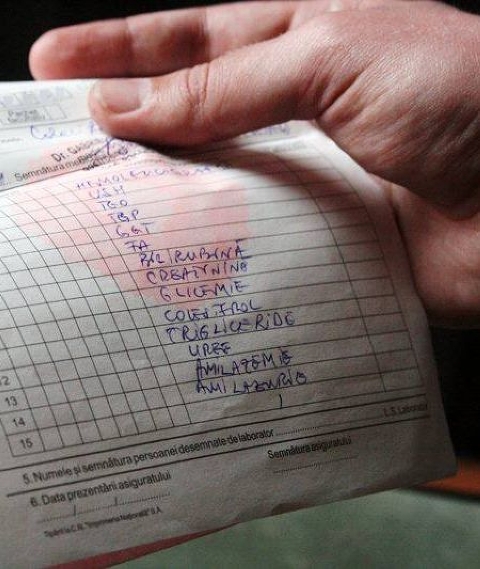 Dr. GA
Semnătura me
VSH
TGO
TGP
GGT
FA
BILIRUBINA
CREATININA
GLICEMIE
COLESTROL
TRIGLICERIDE
UREE
AMILAZEMIE
12
AMILAZURIE
13
14
15
L.S. Laborator
5. Numele și semnătura persoanei desemnate de laborator
Semnătura asiguratului
6. Data prezentării asiguratului
Tipărit la C.N. "Imprimeria Națională" S.A.